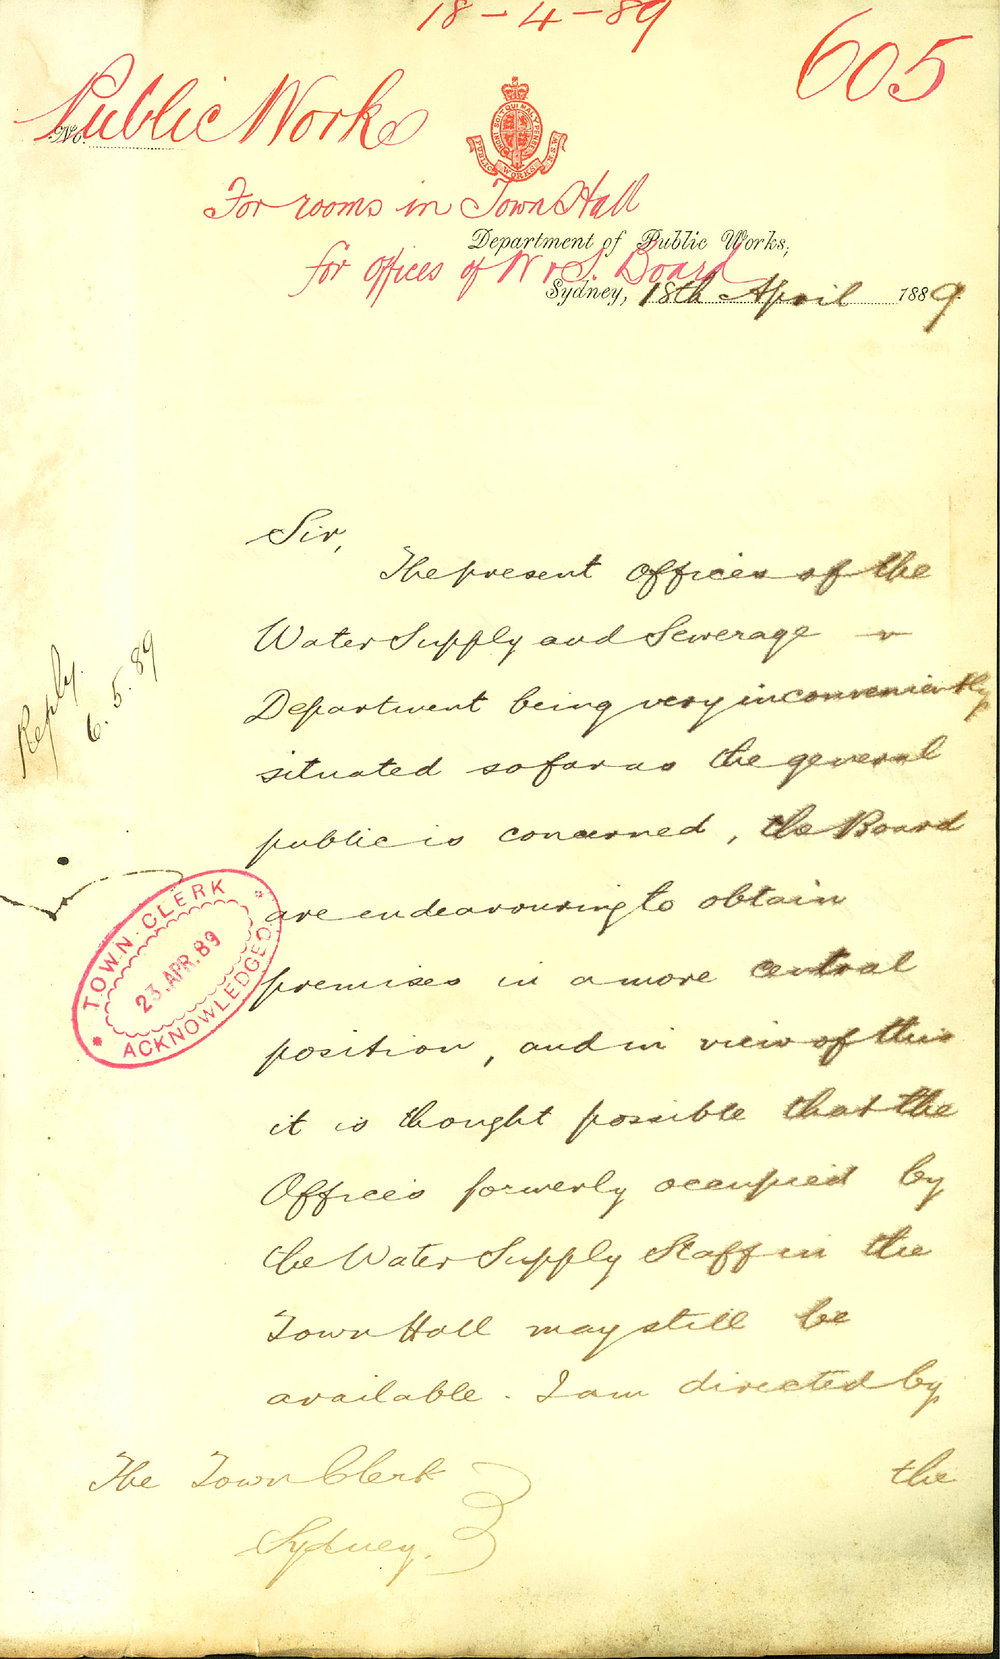 18-4-89
605
Public Works
No.
HONI SOIT QUI MAL Y PENSE
PUBLIC WORKS N.S.W.
For rooms in Town Hall
Department of Public Works,
for offices of W & S. Board
Sydney, 18th April 1889.
Sir,
The present Offices of the
Water Supply and Sewerage
Department being very inconveniently
situated so far as the general
public is concerned, the Board
are endeavouring to obtain
premises in a more central
position, and in view of this
it is thought possible that the
Offices formerly occupied by
the Water Supply Staff in the
Town Hall may still be
available. I am directed by
the
The Town Clerk
Sydney.
Reply.
6.5.89
TOWN CLERK
23.APR.89
ACKNOWLEDGED